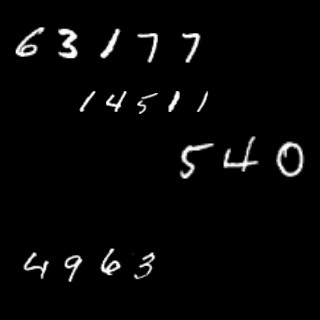 63177
14511
540
4963